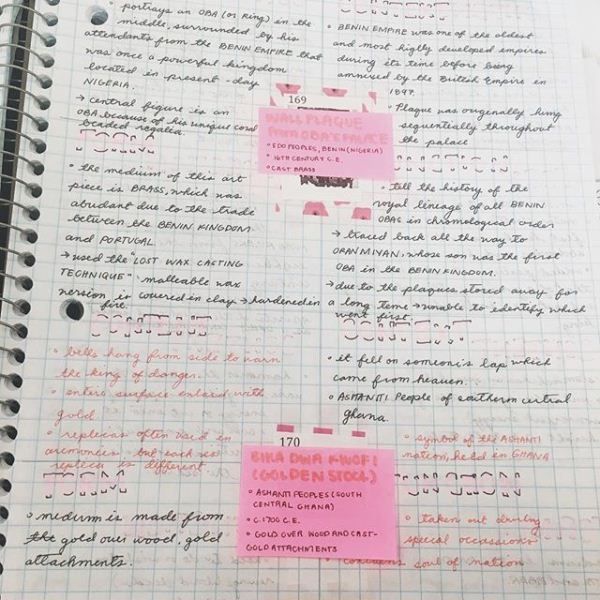 • portrays an OBA (or King) in the
middle, surrounded by his
attendants from the BENIN EMPIRE that
was once a powerful kingdom
located in present-day
NIGERIA.
→ central figure is an
OBA because of his unique coral
beaded regalia.
• the medium of this art
piece is BRASS, which was
abundant due to the trade
between the BENIN KINGDOM
and PORTUGAL
→ used the "LOST WAX CASTING
TECHNIQUE": malleable wax
version is covered in clay → hardened in
fire.
• BENIN EMPIRE was one of the oldest
and most highly developed empires
during its time before being
annexed by the British Empire in
1897.
• Plaque was originally hung
sequentially throughout
the palace
• tell the history of the
royal lineage of all BENIN
OBAS in chromological order
→ traced back all the way to
ORANMIYAN, whose son was the first
OBA in the BENIN KINGDOM.
→ due to the plaques stored away for
a long time → unable to identify which
went first.
169
WALL PLAQUE
FROM OBA'S PALACE
• EDO PEOPLES, BENIN (NIGERIA)
• 16TH CENTURY C.E.
• CAST BRASS
• bells hang from side to warn
the king of danger.
• entire surface inlaid with
gold.
• replicas often used in
ceremonies but each
replica is different.
• medium is made from
the gold over wood, gold
attachments.
• it fell on someone's lap which
came from heaven.
• ASHANTI People of southern central
Ghana.
• symbol of the ASHANTI
nation, held in GHANA
• taken out during
special occassions
• contains soul of nation
170
BIKA DWA KWOFI
(GOLDEN STOOL)
• ASHANTI PEOPLES (SOUTH
CENTRAL GHANA)
• C. 1700 C.E.
• GOLD OVER WOOD AND CAST-
GOLD ATTACHMENTS